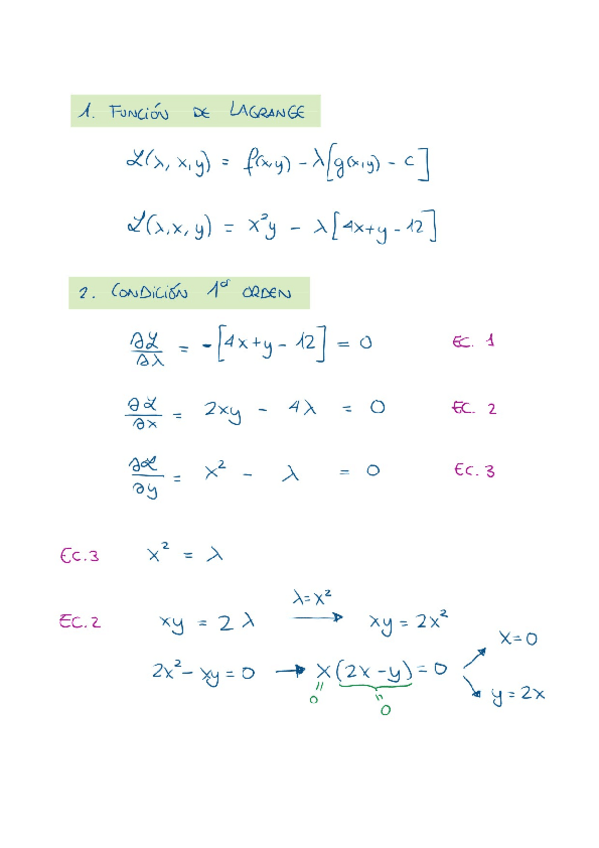 1. FUNCIÓN DE LAGRANGE
ℒ(λ, x, y) = f(x,y) - λ[g(x,y) - c]
ℒ(λ, x, y) = x²y - λ[4x+y-12]
2. CONDICIÓN 1er ORDEN
∂ℒ/∂λ = -[4x+y-12] = 0 EC. 1
∂ℒ/∂x = 2xy - 4λ = 0 EC. 2
∂ℒ/∂y = x² - λ = 0 EC. 3
EC.3 x² = λ
EC.2 xy = 2λ λ=x² → xy = 2x²
2x² - xy = 0 → x(2x-y) = 0 x=0
y = 2x
0 0